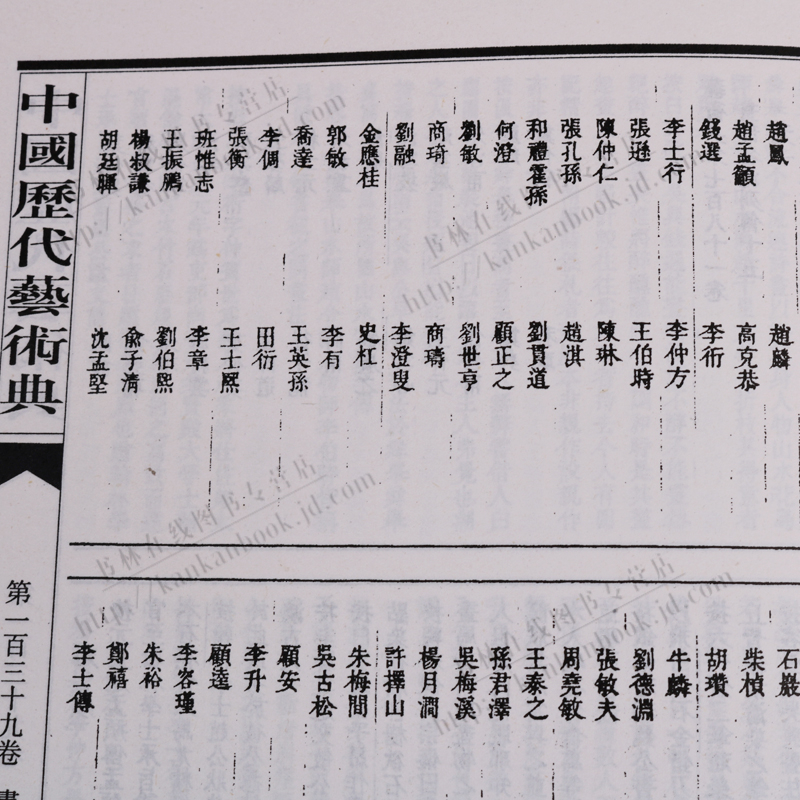 趙鳳 趙麟
趙孟籲 高克恭
錢選 李衎
李士行 李仲方
張遜 王伯時
陳仲仁 陳琳
張孔孫 趙淇
和禮霍孫 劉貫道
何澄 顧正之
劉敏 劉世亨
商琦 商璹
劉融 李澄叟
金應桂 史杠
郭敏 李有
喬達 王英孫
李倜 田衍
張衡 王士熙
班惟志 李章
王振鵬 劉伯熙
楊叔謙 俞子清
胡廷暉 沈孟堅
石巖
柴楨
胡瓚
牛麟
劉德淵
張敏夫
周堯敏
王泰之
孫君澤
吳梅溪
楊月澗
許擇山
朱梅間
吳古松
顧安
李升
顧逵
李容瑾
朱裕
鄭禧
李士傳
中國歷代藝術典
第一百三十九卷
书林在线图书专营店
http://kankanbook.jd.com
书林在线图书专营店
http://kankanbook.jd.com
书林在线图书专营店
http://kankanbook.jd.com
书林在线图书专营店
http://kankanbook.jd.com